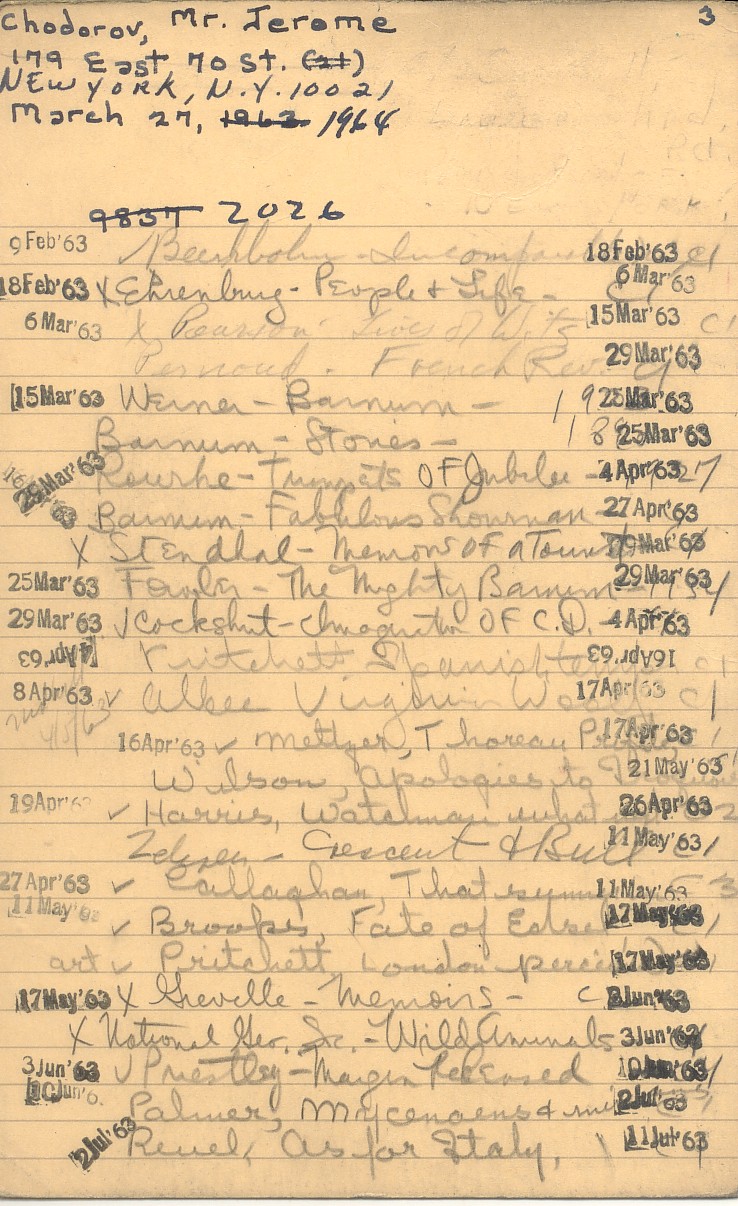 3
Chodorov, Mr. Jerome
179 East 70 St. (21)
NEW YORK, N.Y. 10021
March 27, 1963 1964
9837 2026
9 Feb'63 ✓ Beerbohm - Incomparable 18 Feb'63 C1
18 Feb'63 X Ehrenburg - People & Life - C1 6 Mar'63
6 Mar'63 X Pearson - Lives of Wits 15 Mar'63 C1
Pernoud - French Rev. C1 29 Mar'63
15 Mar'63 Werner - Barnum - 25 Mar'63
Barnum - Stories - 25 Mar'63
25 Mar'63 Rourke - Trumpets OF Jubilee - 4 Apr'63 27
Barnum - Fabulous Showman - 27 Apr'63
X Stendhal - Memoirs OF a Tourist 29 Mar'63
25 Mar'63 Fowler - The Mighty Barnum - 29 Mar'63
29 Mar'63 ✓ Cockshut - Imagination OF C.D. - 4 Apr'63
4 Apr'63 Pritchett Spanish temper 16 Apr'63 C1
8 Apr'63 ✓ Albee Virginia Woolf 17 Apr'63 C1
16 Apr'63 ✓ Meltzer, Thoreau 17 Apr'63
Wilson, Apologies to 21 May'63
19 Apr'63 ✓ Harris, Watchman what 26 Apr'63 2
- Crescent & Bull 11 May'63 C1
27 Apr'63 ✓ Callaghan, That summer 11 May'63 3
11 May'63 ✓ Brooks, Fate of Edsel 17 May'63
art ✓ Pritchett London perceived 17 May'63
17 May'63 X Greville - Memoirs - C 3 Jun'63
X National Geo. Soc. - Wild Animals 3 Jun'63
3 Jun'63 ✓ Priestley - Margin Released 10 Jun'63
10 Jun'6 Palmer, Mycenaeans & 2 Jul'63
2 Jul'63 Revel, As for Italy, 11 Jul'63